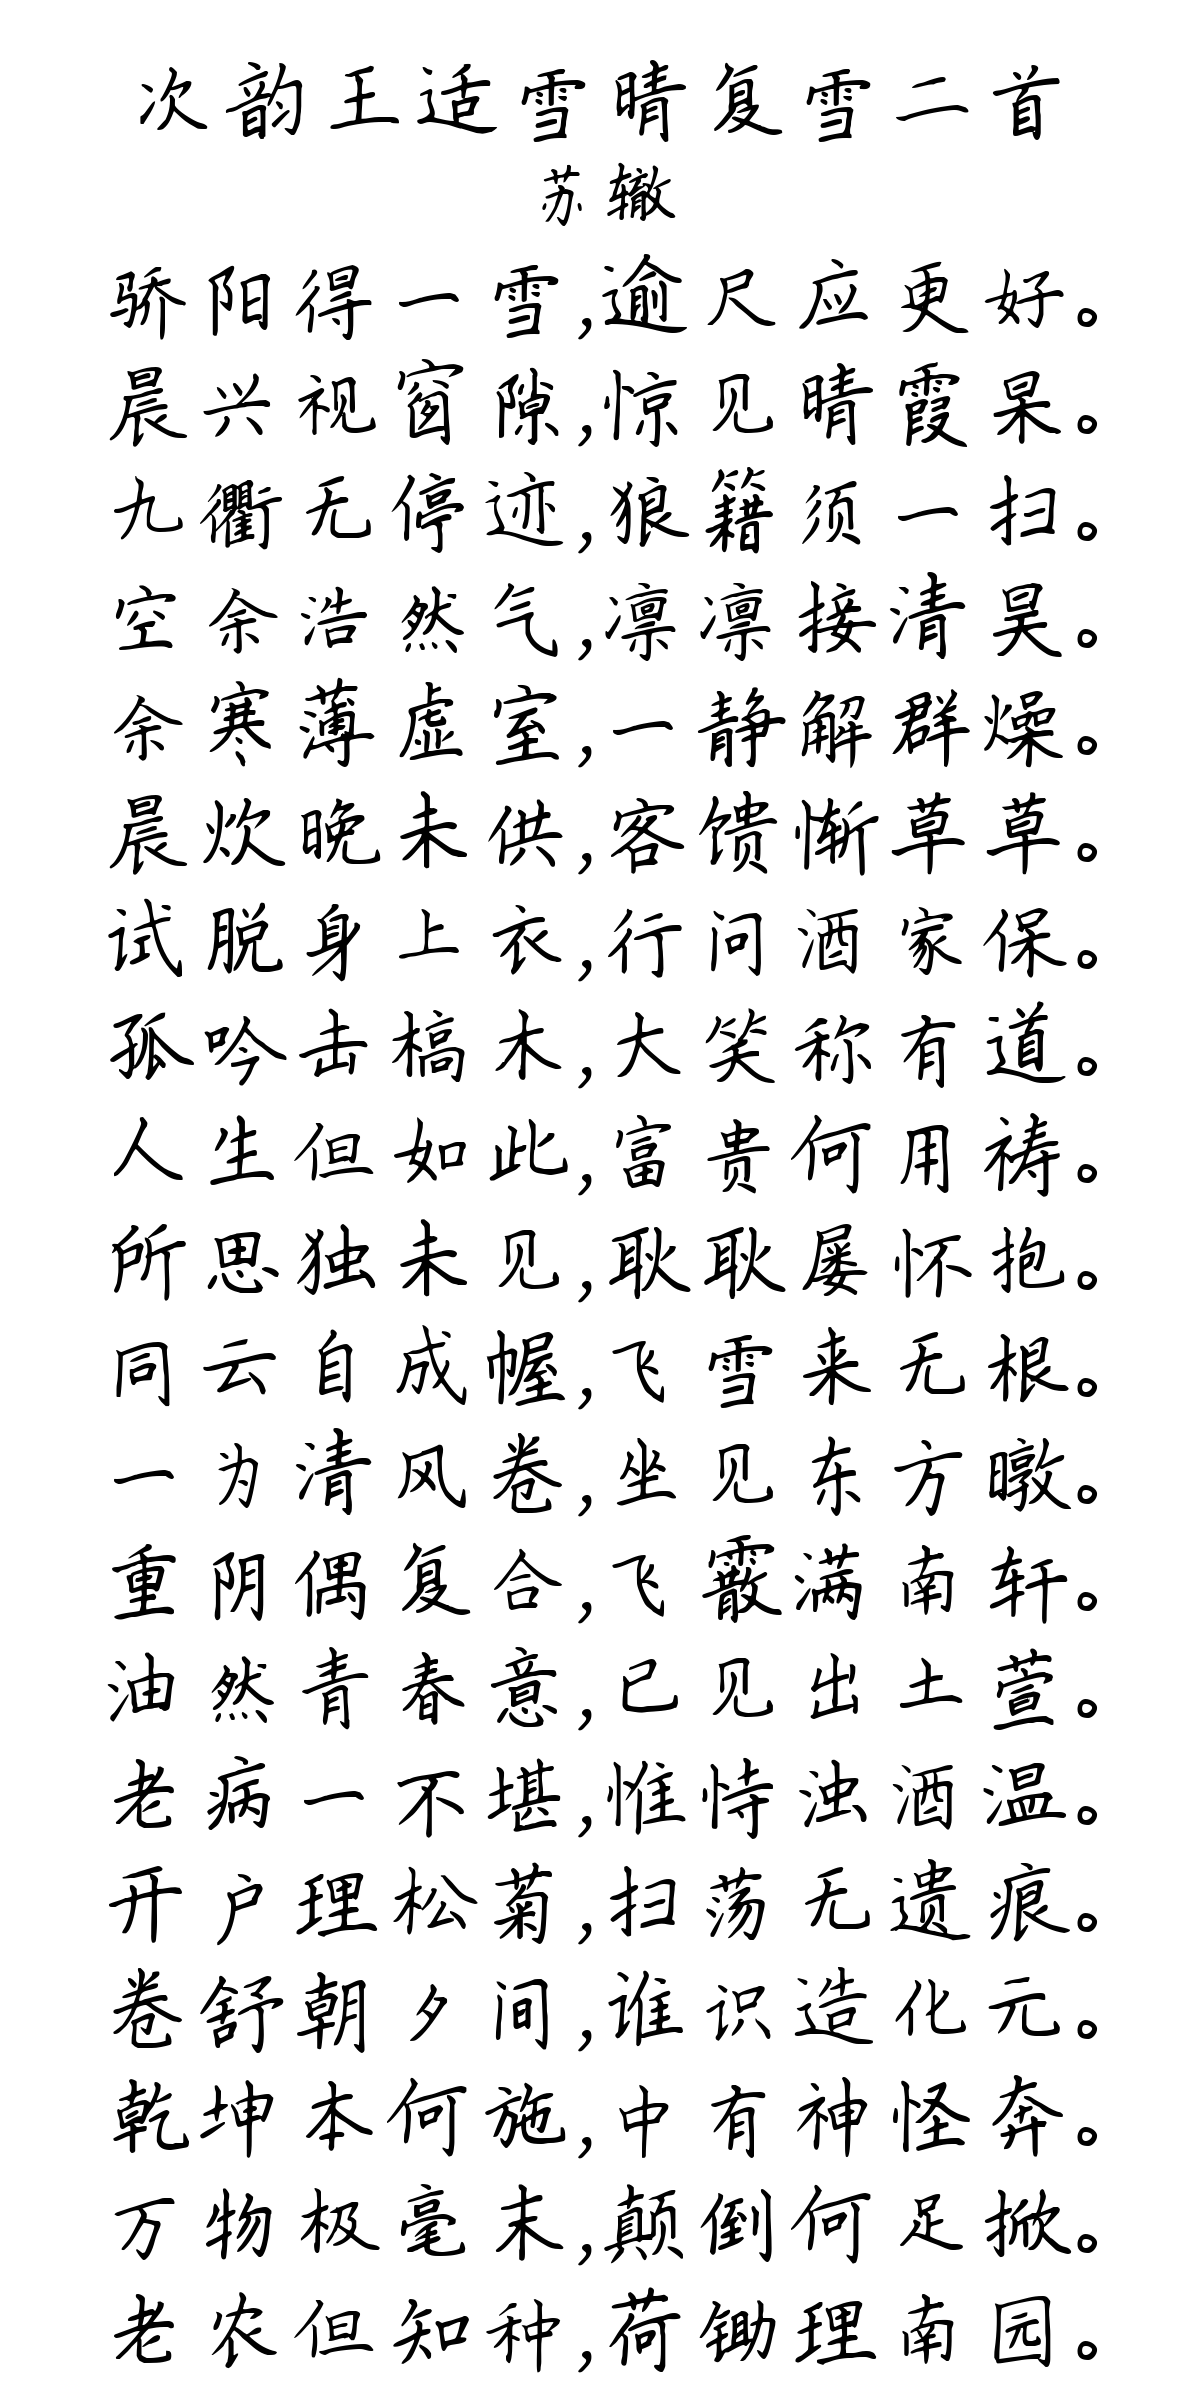 次韵王适雪晴复雪二首
苏辙
骄阳得一雪,逾尺应更好。
晨兴视窗隙,惊见晴霞杲。
九衢无停迹,狼籍须一扫。
空余浩然气,凛凛接清昊。
余寒薄虚室,一静解群燥。
晨炊晚未供,客馈惭草草。
试脱身上衣,行问酒家保。
孤吟击槁木,大笑称有道。
人生但如此,富贵何用祷。
所思独未见,耿耿屡怀抱。
同云自成幄,飞雪来无根。
一为清风卷,坐见东方暾。
重阴偶复合,飞霰满南轩。
油然青春意,已见出土萱。
老病一不堪,惟恃浊酒温。
开户理松菊,扫荡无遗痕。
卷舒朝夕间,谁识造化元。
乾坤本何施,中有神怪奔。
万物极毫末,颠倒何足掀。
老农但知种,荷锄理南园。